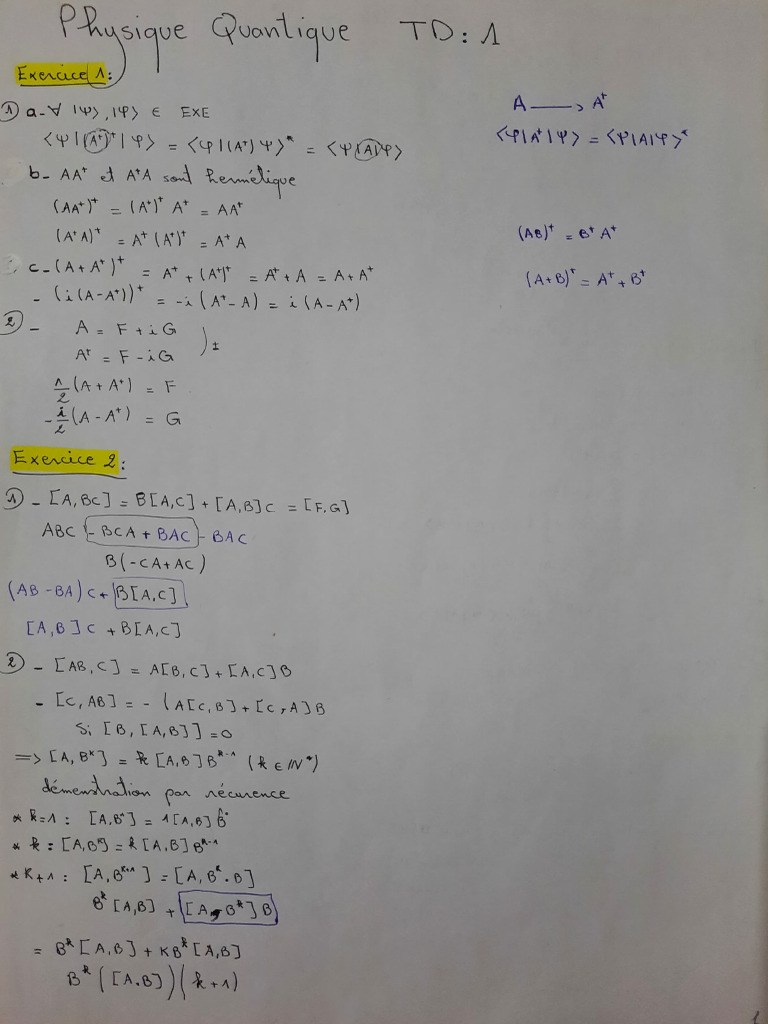 Physique Quantique TD: 1
Exercice 1:
1) a- ∀ |Ψ>, |φ> ∈ EXE
<Ψ|(A⁺)⁺|φ> = <φ|(A⁺)Ψ>* = <Ψ|A|φ>
b- AA⁺ et A⁺A sont hermétique
(AA⁺)⁺ = (A⁺)⁺ A⁺ = AA⁺
(A⁺A)⁺ = A⁺ (A⁺)⁺ = A⁺A
c- (A+A⁺)⁺ = A⁺ + (A⁺)⁺ = A⁺+A = A+A⁺
- (i(A-A⁺))⁺ = -i (A⁺-A) = i (A-A⁺)
A ⟶ A⁺
<φ|A⁺|Ψ> = <Ψ|A|φ>*
(AB)⁺ = B⁺A⁺
(A+B)⁺ = A⁺+B⁺
2) - A = F + i G
A⁺ = F - i G ) ±
1/2 (A + A⁺) = F
- i/2 (A - A⁺) = G
Exercice 2:
1) - [A, BC] = B[A,C] + [A,B]C = [F,G]
ABC - BCA + BAC - BAC
B(-CA+AC)
(AB-BA)C + B[A,C]
[A,B]C + B[A,C]
2) - [AB,C] = A[B,C] + [A,C]B
- [C,AB] = - (A[C,B] + [C,A]B
Si [B, [A,B]] = 0
=> [A,Bᵏ] = k [A,B]Bᵏ⁻¹ (k ∈ IN*)
démenstration par récurence
* k=1 : [A,Bᵏ] = 1[A,B] B°
* k : [A,Bᵏ] = k [A,B] Bᵏ⁻¹
* K+1 : [A,Bᵏ⁺¹] = [A, Bᵏ.B]
Bᵏ [A,B] + [A,Bᵏ]B
= Bᵏ [A,B] + KBᵏ [A,B]
Bᵏ ([A.B])(k+1)
1